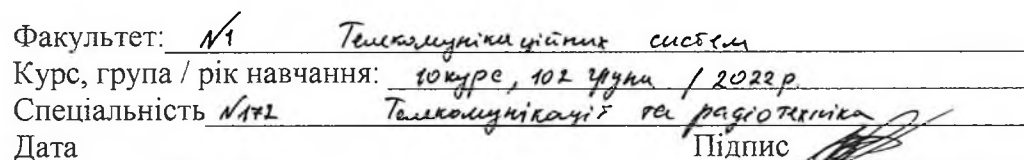 Факультет: №1 Телекомунікаційних систем
Курс, група / рік навчання: 10 курс, 102 група / 2022 р
Спеціальність №172 Телекомунікації та радіотехніка
Дата Підпис